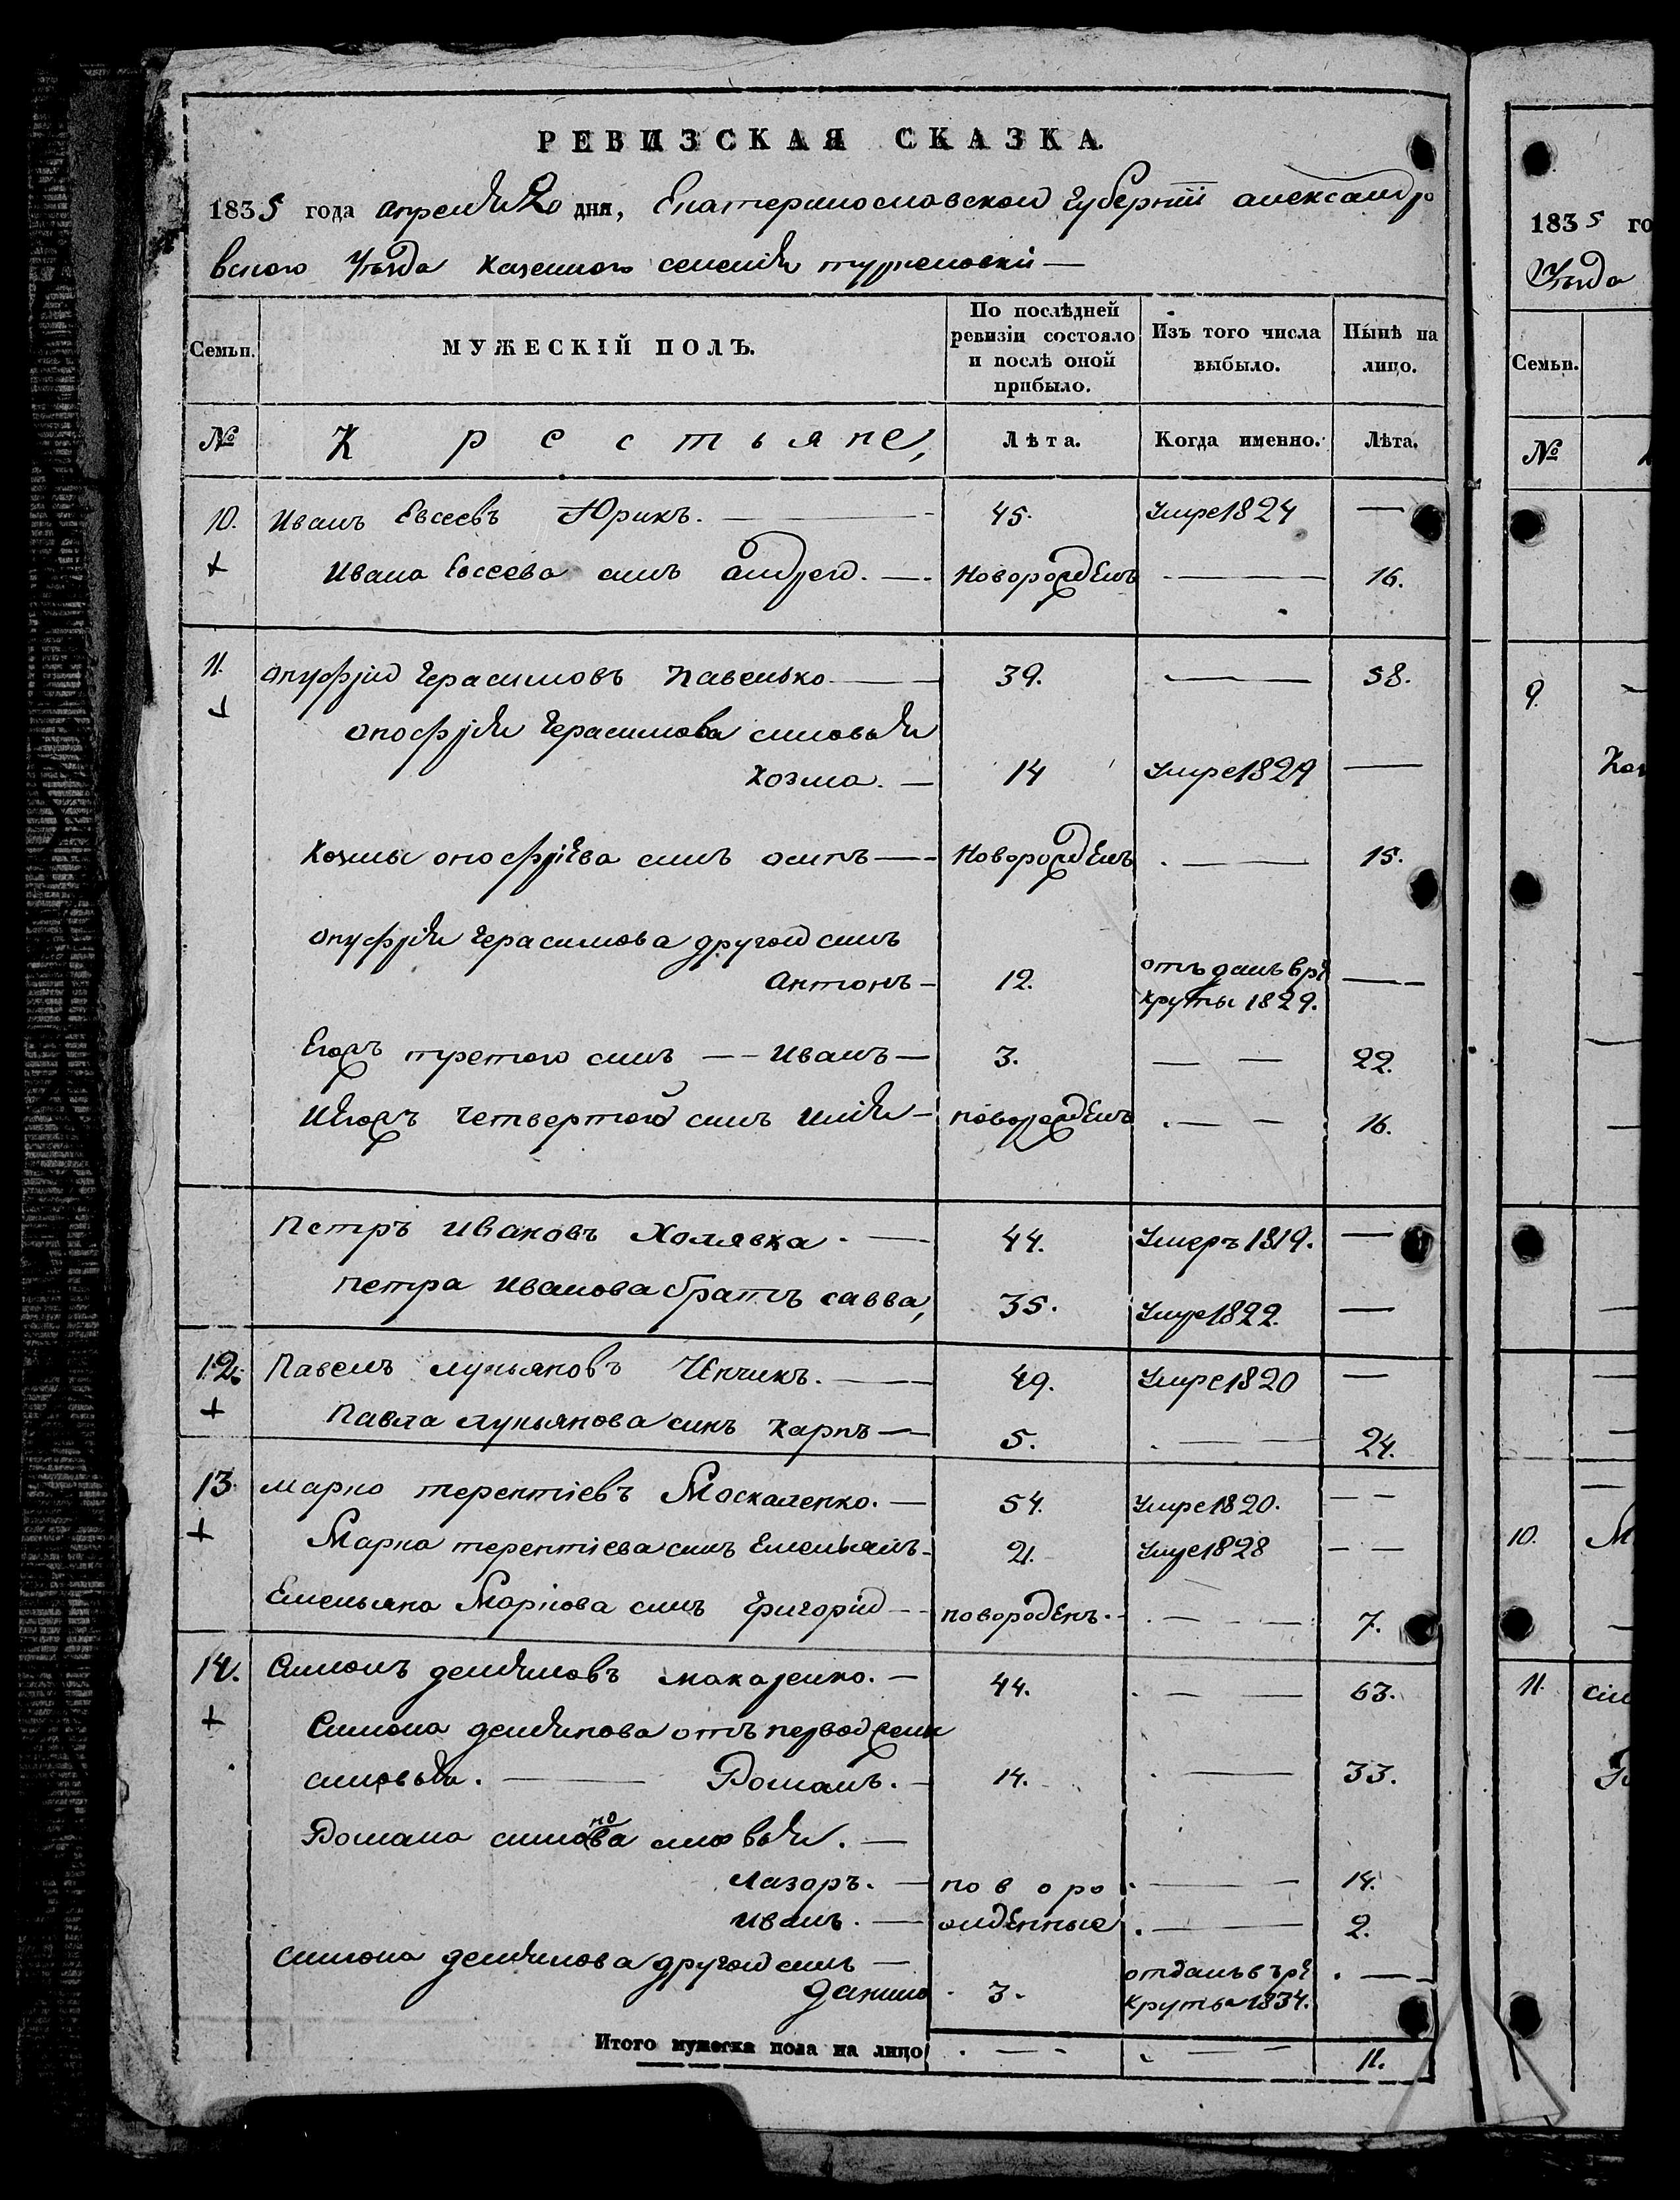 РЕВИЗСКАЯ СКАЗКА.
1835 года апреля 20 дня, Екатеринославской губернїи александро
вского Уѣзда казенного селенія
Семьи. МУЖЕСКІЙ ПОЛЪ. По послѣдней ревизіи состояло и послѣ оной прибыло. Изъ того числа выбыло. Нынѣ на лицо.
№ Крестьяне, Лѣта. Когда именно. Лѣта.
10. Иванъ Евсеевъ Юрикъ. — 45. Умре 1824 —
+ Ивана Евсеева синъ андрей. — Новорожденъ — 16.
11. онуфрій Герасимовъ Павенько — 39. — 58.
онофрія Герасимова синовья
Козма. — 14 Умре 1829 —
Козмы онофріева синъ осипъ — Новорожденъ — 15.
онуфрія Герасимова другой синъ
Антонъ — 12. отъданъ в рѣ —
круты 1829.
Егожъ третого синъ — Иванъ — 3. — 22.
Иегожъ четвертой синъ илія — новорожденъ — 16.
Петръ Ивановъ Холявка. — 44. Умеръ 1819. —
Петра Иванова братъ савва, 35. Умре 1822. —
12. Павелъ лукьяновъ Чепчикъ. — 49. Умре 1820 —
+ Павла лукьянова синъ Карпъ — 5. — 24.
13. марко терентіевъ Москаленко. — 54. Умре 1820. —
+ Марка терентіева синъ Емельянъ — 21. Умре 1828 —
Емельяна Маркова синъ Григорій — новороденъ. — 7.
14. Симонъ демяновъ макаренко. — 44. — 63.
+ Симона демянова отъ первой жени
синовья. — Романъ. — 14. — 33.
Романа симонова синовья. —
Лазоръ. — новоро — 14.
иванъ. — жденные — 2.
симона демянова другой синъ —
Данило 3. отданъ в ърѣ —
круты 1834.
Итого мужеска пола на лицо — — 11.
1835 го
Уѣзда
Семьи.
№
9.
10. М
11.